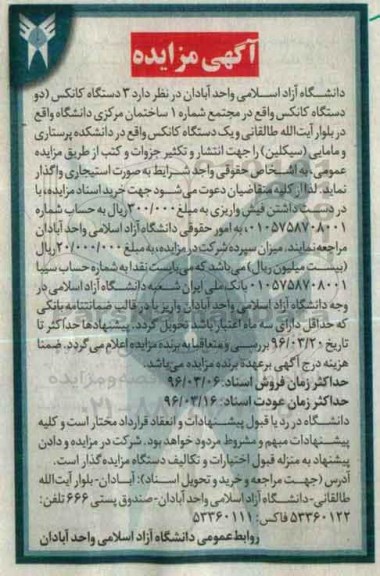 آگهی مزایده
دانشگاه آزاد اسلامی واحد آبادان در نظر دارد ۳ دستگاه کانکس (دو
دستگاه کانکس واقع در مجتمع شماره ۱ ساختمان مرکزی دانشگاه واقع
در بلوار آیت‌الله طالقانی و یک دستگاه کانکس واقع در دانشکده پرستاری
و مامایی (سیکلین) را جهت انتشار و تکثیر جزوات و کتب از طریق مزایده
عمومی، به اشخاص حقوقی واجد شرایط به صورت استیجاری واگذار
نماید. لذا از کلیه متقاضیان دعوت می‌شود جهت خرید اسناد مزایده، با
در دست داشتن فیش واریزی به مبلغ ۳۰۰/۰۰۰ ریال به حساب شماره
۰۱۰۵۷۵۸۷۰۸۰۰۱، به امور حقوقی دانشگاه آزاد اسلامی واحد آبادان
مراجعه نمایند. میزان سپرده شرکت در مزایده، به مبلغ ۲۰/۰۰۰/۰۰۰ ریال
(بیست میلیون ریال) می‌باشد که می‌بایست نقدا به شماره حساب سیبا
۰۱۰۵۷۵۸۷۰۸۰۰۱ بانک ملی ایران شعبه دانشگاه آزاد اسلامی در
وجه دانشگاه آزاد اسلامی واحد آبادان واریز یا در قالب ضمانتنامه بانکی
که حداقل دارای سه ماه اعتبار باشد تحویل گردد. پیشنهادها حداکثر تا
تاریخ ۹۶/۰۳/۲۰ بررسی و متعاقبا به برنده مزایده اعلام می‌گردد. ضمنا
هزینه درج آگهی برعهده برنده مزایده می‌باشد.
حداکثر زمان فروش اسناد: ۹۶/۰۳/۰۶
حداکثر زمان عودت اسناد: ۹۶/۰۳/۱۶
دانشگاه در رد یا قبول پیشنهادات و انعقاد قرارداد مختار است و کلیه
پیشنهادات مبهم و مشروط مردود خواهد بود. شرکت در مزایده و دادن
پیشنهاد به منزله قبول اختیارات و تکالیف دستگاه مزایده گذار است.
آدرس (جهت مراجعه و خرید و تحویل اسناد): آبادان- بلوار آیت‌الله
طالقانی- دانشگاه آزاد اسلامی واحد آبادان- صندوق پستی ۶۶۶ تلفن:
۵۳۳۶۰۱۲۲ فاکس: ۵۳۳۶۰۱۱۱
روابط عمومی دانشگاه آزاد اسلامی واحد آبادان